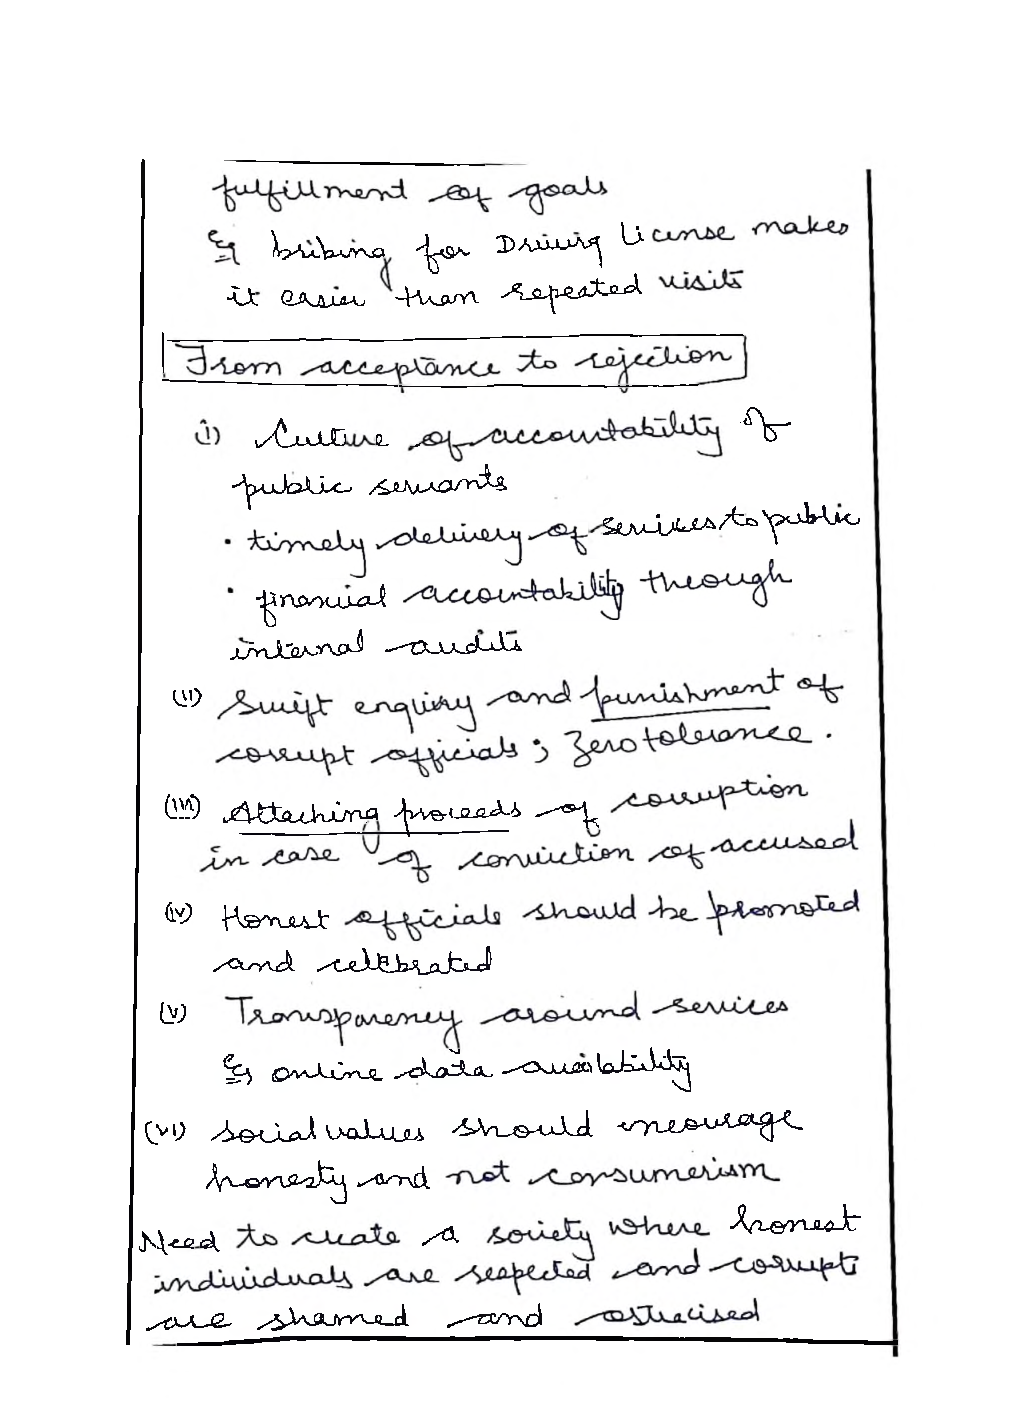 fulfillment of goals
Eg bribing for Driving License makes
it easier than repeated visits
From acceptance to rejection
(i) Culture of accountability of
public servants
• timely delivery of services to public
• financial accountability through
internal audits
(ii) Swift enquiry and punishment of
corrupt officials; Zero tolerance.
(iii) Attaching proceeds of corruption
in case of conviction of accused
(iv) Honest officials should be promoted
and celebrated
(v) Transparency around services
Eg online data availability
(vi) Social values should encourage
honesty and not consumerism
Need to create a society where honest
individuals are respected and corrupts
are shamed and ostracised